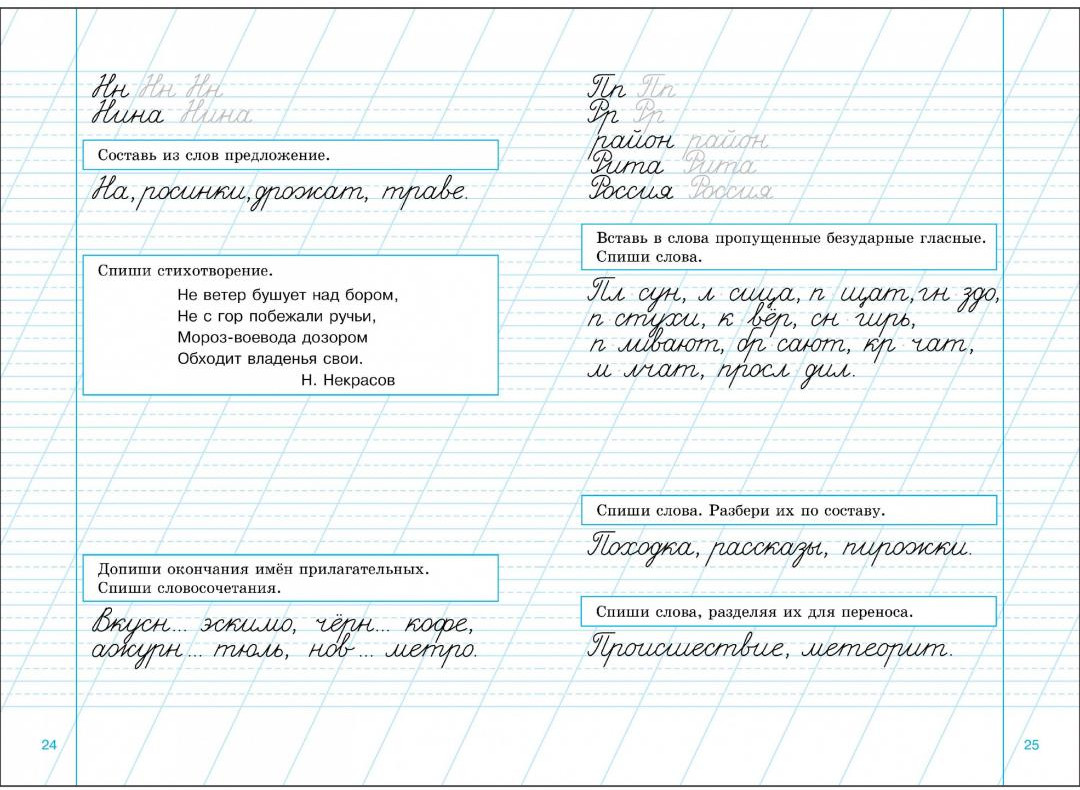 Нн Нн Нн
Нина Нина
Составь из слов предложение.
На, росинки, дрожат, траве.
Спиши стихотворение.
Не ветер бушует над бором,
Не с гор побежали ручьи,
Мороз-воевода дозором
Обходит владенья свои.
Н. Некрасов
Допиши окончания имён прилагательных.
Спиши словосочетания.
Вкусн... эскимо, чёрн... кофе,
ажурн... тюль, нов... метро.
24
Пп Пп
Рр Рр
район район
Рита Рита
Россия Россия
Вставь в слова пропущенные безударные гласные.
Спиши слова.
Пл сун, л сица, п щат, гн здо,
п стухи, к вёр, сн гирь,
п ливают, бр сают, кр чат,
м лчат, просл дил.
Спиши слова. Разбери их по составу.
Походка, рассказы, пирожки.
Спиши слова, разделяя их для переноса.
Происшествие, метеорит.
25